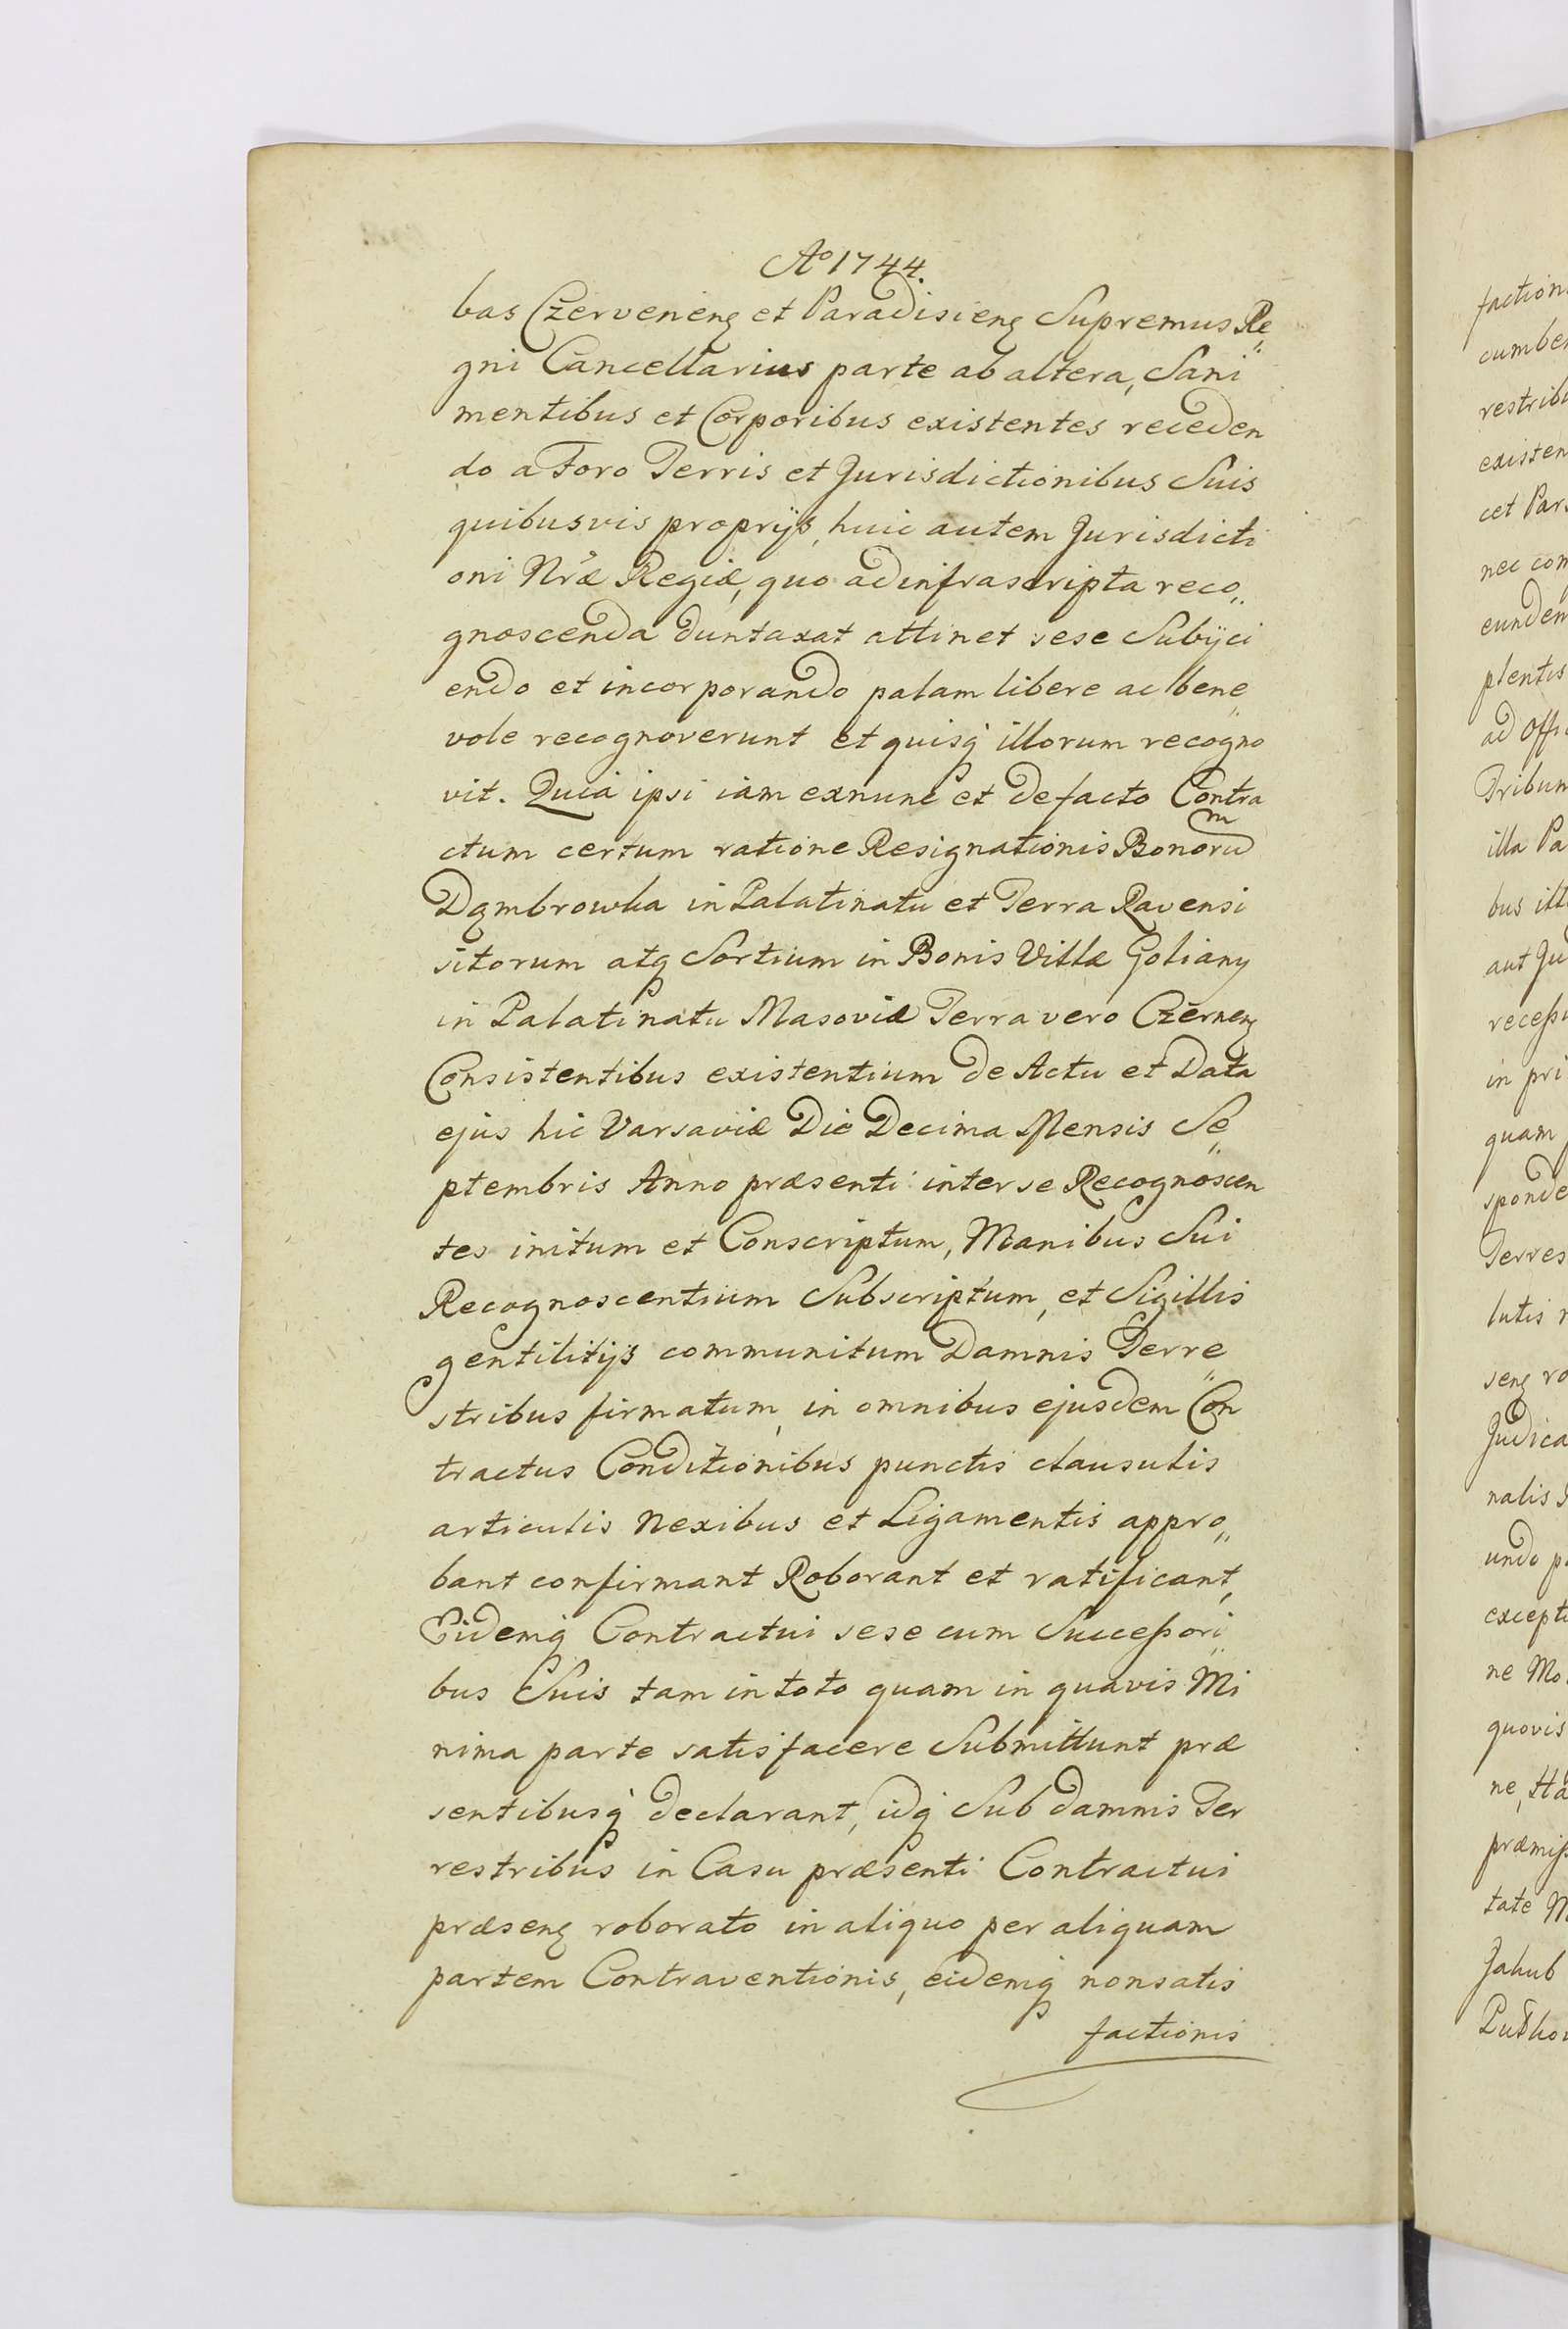 Ao 1744.
bas Czerveneñ et Paradisieñ Supremus Re„
gni Cancellarius parte ab altera, Sani
mentibus et Corporibus existentes receden
do a Foro Terris et Jurisdictionibus Suis
quibusvis proprijs, huic autem Jurisdicti
oni Nræ Regiæ, quo ad infrascripta reco„
gnoscenda duntaxat attinet sese Subijci
endo et incorporando palam libere ac bene„
vole recognoverunt et quisq' illorum recogno
vit. Quia ipsi iam exnunc et defacto Contra
ctum certum ratione Resignationis Bonorum
Dąmbrowka in Palatinatu et Terra Ravensi
sitorum atq Sortium in Bonis Villæ Goliany
in Palatinatu Masoviæ Terra vero Czerneñ
Consistentibus existentium de Actu et Data
ejus hic Varsaviæ Die Decima Mensis Se„
ptembris Anno præsenti inter se Recognoscen
tes initum et Conscriptum, Manibus Sui
Recognoscentium Subscriptum, et Sigillis
gentilitijs communitum Damnis Terre„
stribus firmatum, in omnibus ejusdem Con
tractus Conditionibus punctis clausulis
articulis Nexibus et Ligamentis appro„
bant confirmant Roborant et ratificant,
Eidemq Contractui sese cum Successori„
bus Suis tam in toto quam in quavis Mi
nima parte satisfacere Submittunt præ
sentibusq' declarant, idq' Sub damnis Ter
restribus in Casu præsenti Contractui
præseñ roborato in aliquo per aliquam
partem Contraventionis, eidemq nonsatis
factionis
faction
cumbe
restrib
existen
cet Par
nec com
eundem
plentis
ad Offi
Tribun
illa Pa
bus ill
aut Ju
recessi
in pri
quam
sponde
Terres
lutis
señ ro
Judica
nalis
undo p
except
ne Mo
quovis
ne, Ha
præmiss
tate N
Jakub